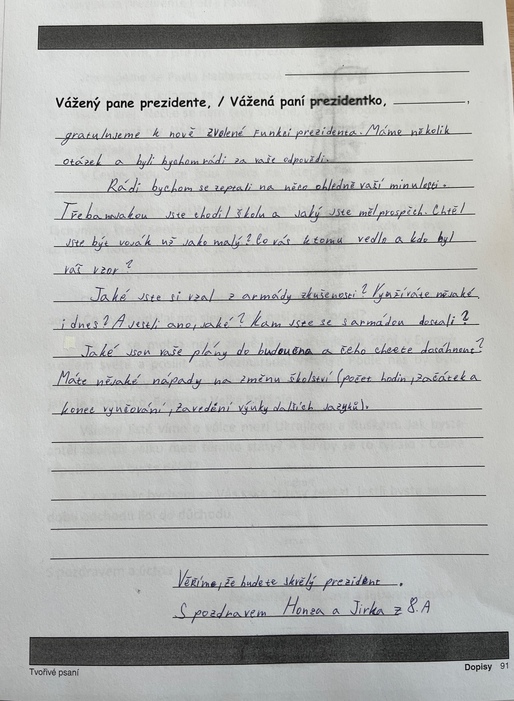 Vážený pane prezidente, / Vážená paní prezidentko,
gratulujeme k nově zvolené funkci prezidenta. Máme několik
otázek a byli bychom rádi za vaše odpovědi.
Rádi bychom se zeptali na něco ohledně vaší minulosti.
Třeba na jakou jste chodil školu a jaký jste měl prospěch. Chtěl
jste být voják už jako malý? Co vás k tomu vedlo a kdo byl
váš vzor?
Jaké jste si vzal z armády zkušenosti? Využíváte nějaké
i dnes? A jestli ano, jaké? Kam jste se s armádou dostali?
Jaké jsou vaše plány do budoucna a čeho chcete dosáhnout?
Máte nějaké nápady na změnu školství (počet hodin, začátek a
konec vyučování, zavedení výuky dalších jazyků).
Věříme, že budete skvělý prezident.
S pozdravem Honza a Jirka z 8.A
Tvořivé psaní
Dopisy 91